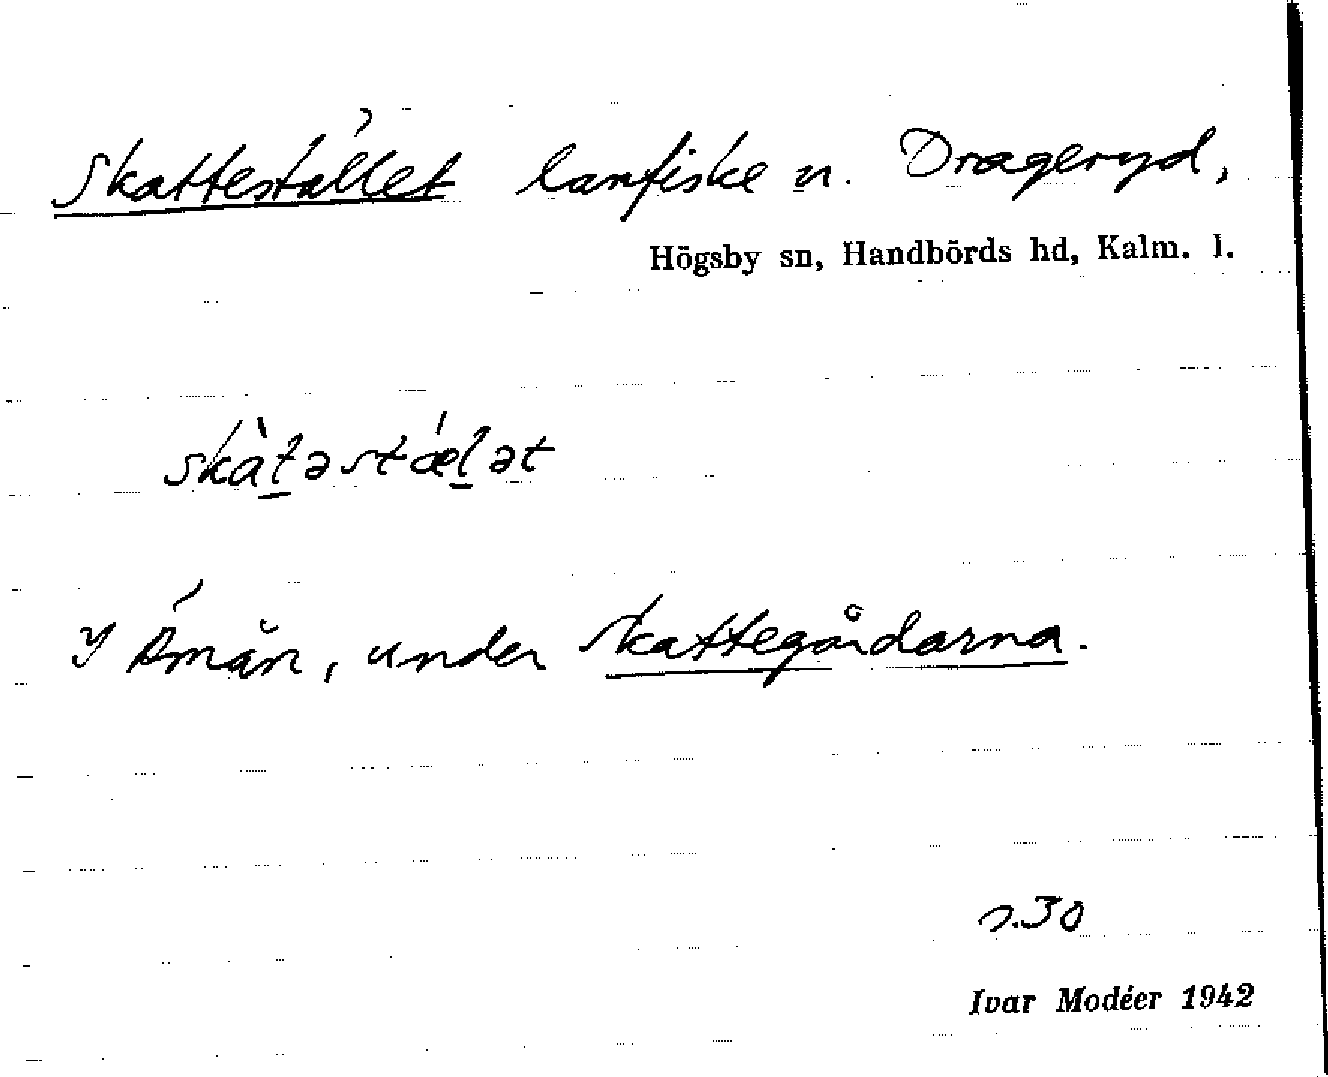 Skattestället lanfiske u. Drageryd,
Högsby sn, Handbörds hd, Kalm. l.
skàt̲əstǽl̲ət
I Åmån, under Skattegårdarna.
s.30
Ivar Modéer 1942